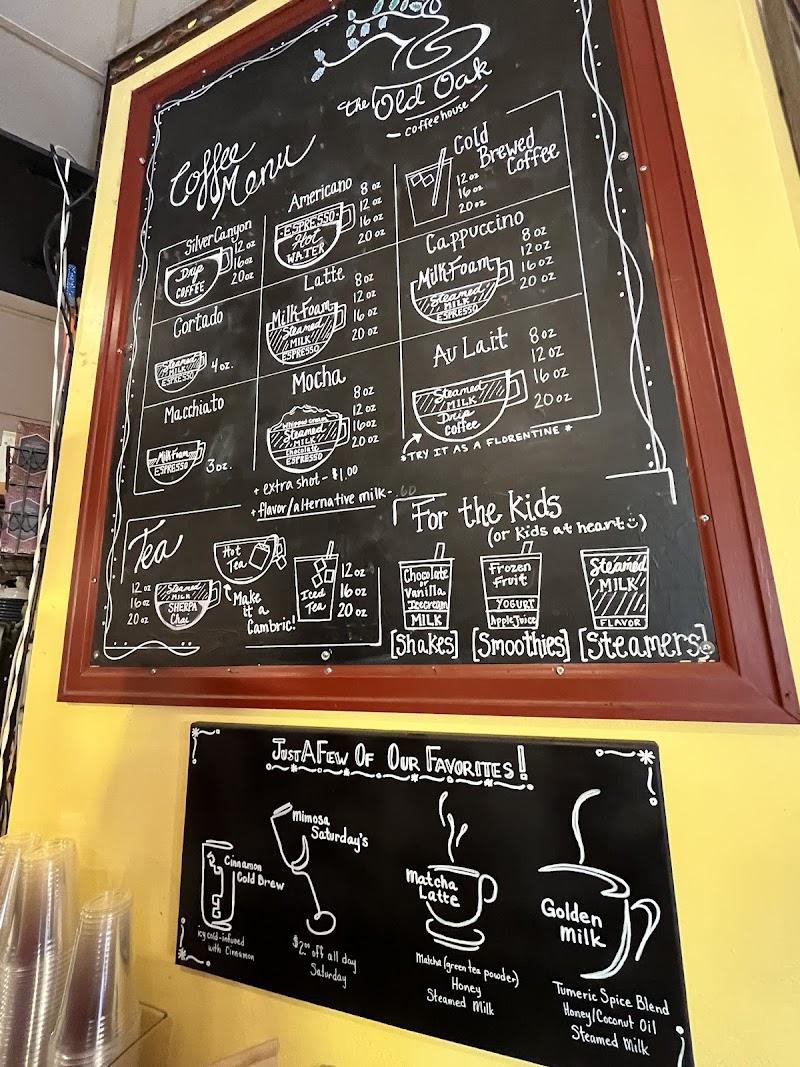 the Old Oak
coffeehouse
Coffee
Menu
Silver Canyon
Drip
COFFEE
12 oz
16 oz
20 oz
Americano
ESPRESSO
Hot
WATER
8 oz
12 oz
16 oz
20 oz
Cold
Brewed
Coffee
12 oz
16 oz
20 oz
Cortado
Steamed
MILK
ESPRESSO
4 oz.
Latte
Milk Foam
Steamed
MILK
ESPRESSO
8 oz
12 oz
16 oz
20 oz
Cappuccino
Milk Foam
Steamed
MILK
ESPRESSO
8 oz
12 oz
16 oz
20 oz
Macchiato
Milk Foam
ESPRESSO
3 oz.
Mocha
Whipped Cream
Steamed
MILK
Chocolate
ESPRESSO
8 oz
12 oz
16 oz
20 oz
Au Lait
Steamed
MILK
Drip
Coffee
8 oz
12 oz
16 oz
20 oz
*TRY IT AS A FLORENTINE *
+ extra shot - $1.00
+ flavor/alternative milk - .60
Tea
12 oz
16 oz
20 oz
Steamed
MILK
SHERPA
Chai
Hot
Tea
Make
it a
Cambric!
Iced
Tea
12 oz
16 oz
20 oz
For the kids
(or kids at heart)
Chocolate
or
Vanilla
Icecream
MILK
[Shakes]
Frozen
Fruit
YOGURT
Apple Juice
[Smoothies]
Steamed
MILK
FLAVOR
[Steamers]
JUST A FEW OF OUR FAVORITES!
Cinnamon
Cold Brew
icy cold-infused
with Cinnamon
Mimosa
Saturday's
$2.00 off all day
Saturday
Matcha
Latte
Matcha (green tea powder)
Honey
Steamed Milk
Golden
Milk
Tumeric Spice Blend
Honey/Coconut Oil
Steamed Milk